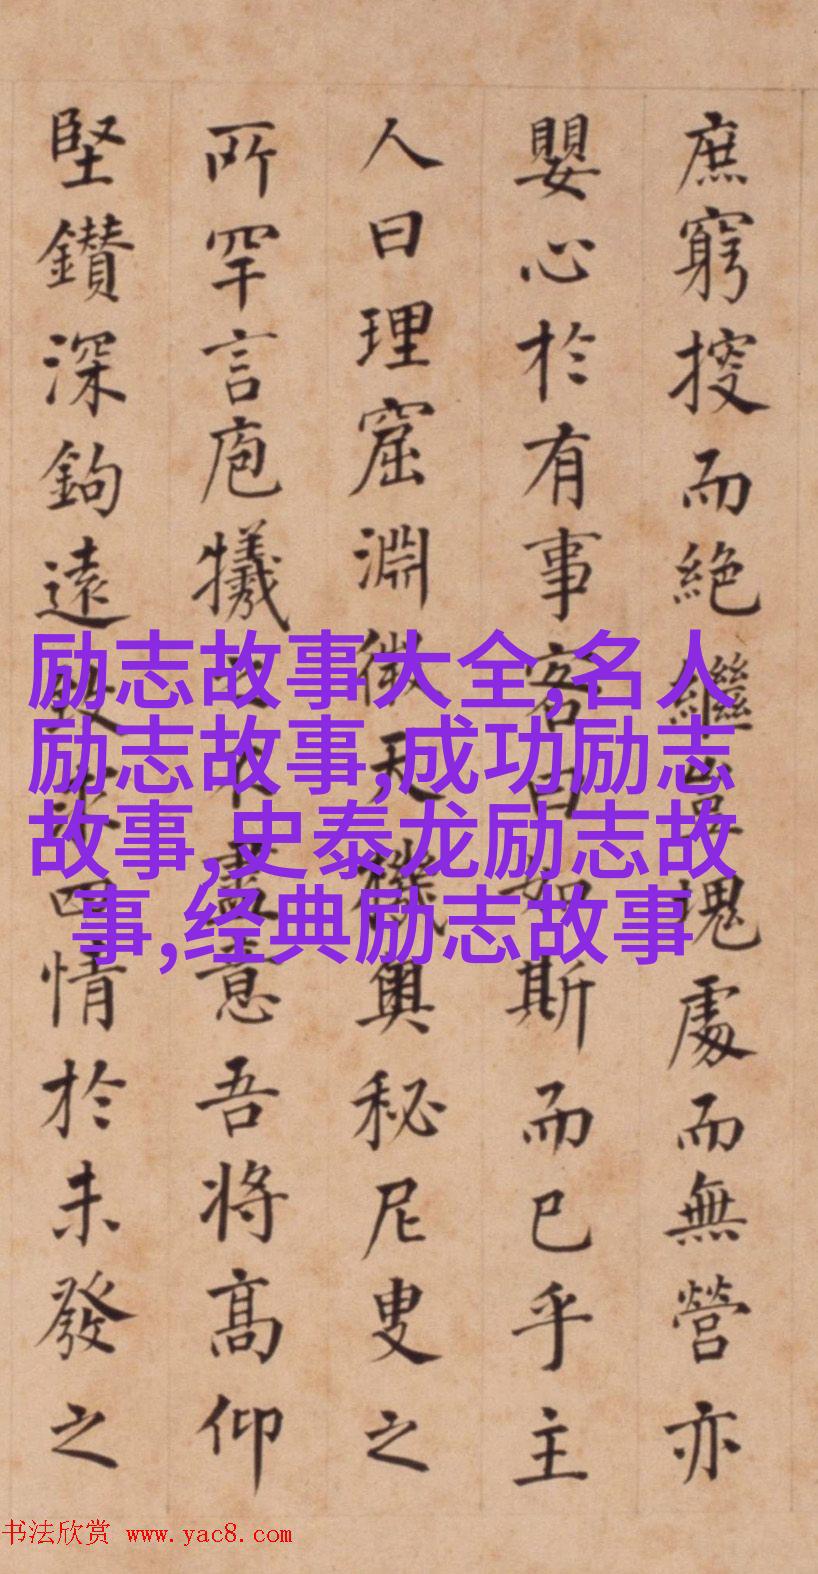 庶窮搜而絕繼豈塊處而無營亦
嬰心於有事客曰如斯而已乎主
人曰理窟淵微天機奧秘尼叟之
所罕言庖犧不盡意吾將高仰
堅鑽深鉤遠致四情於未發之
励志故事大全,名人
励志故事,成功励志
故事,史泰龙励志故
事,经典励志故事
书法欣赏 www.yac8.com